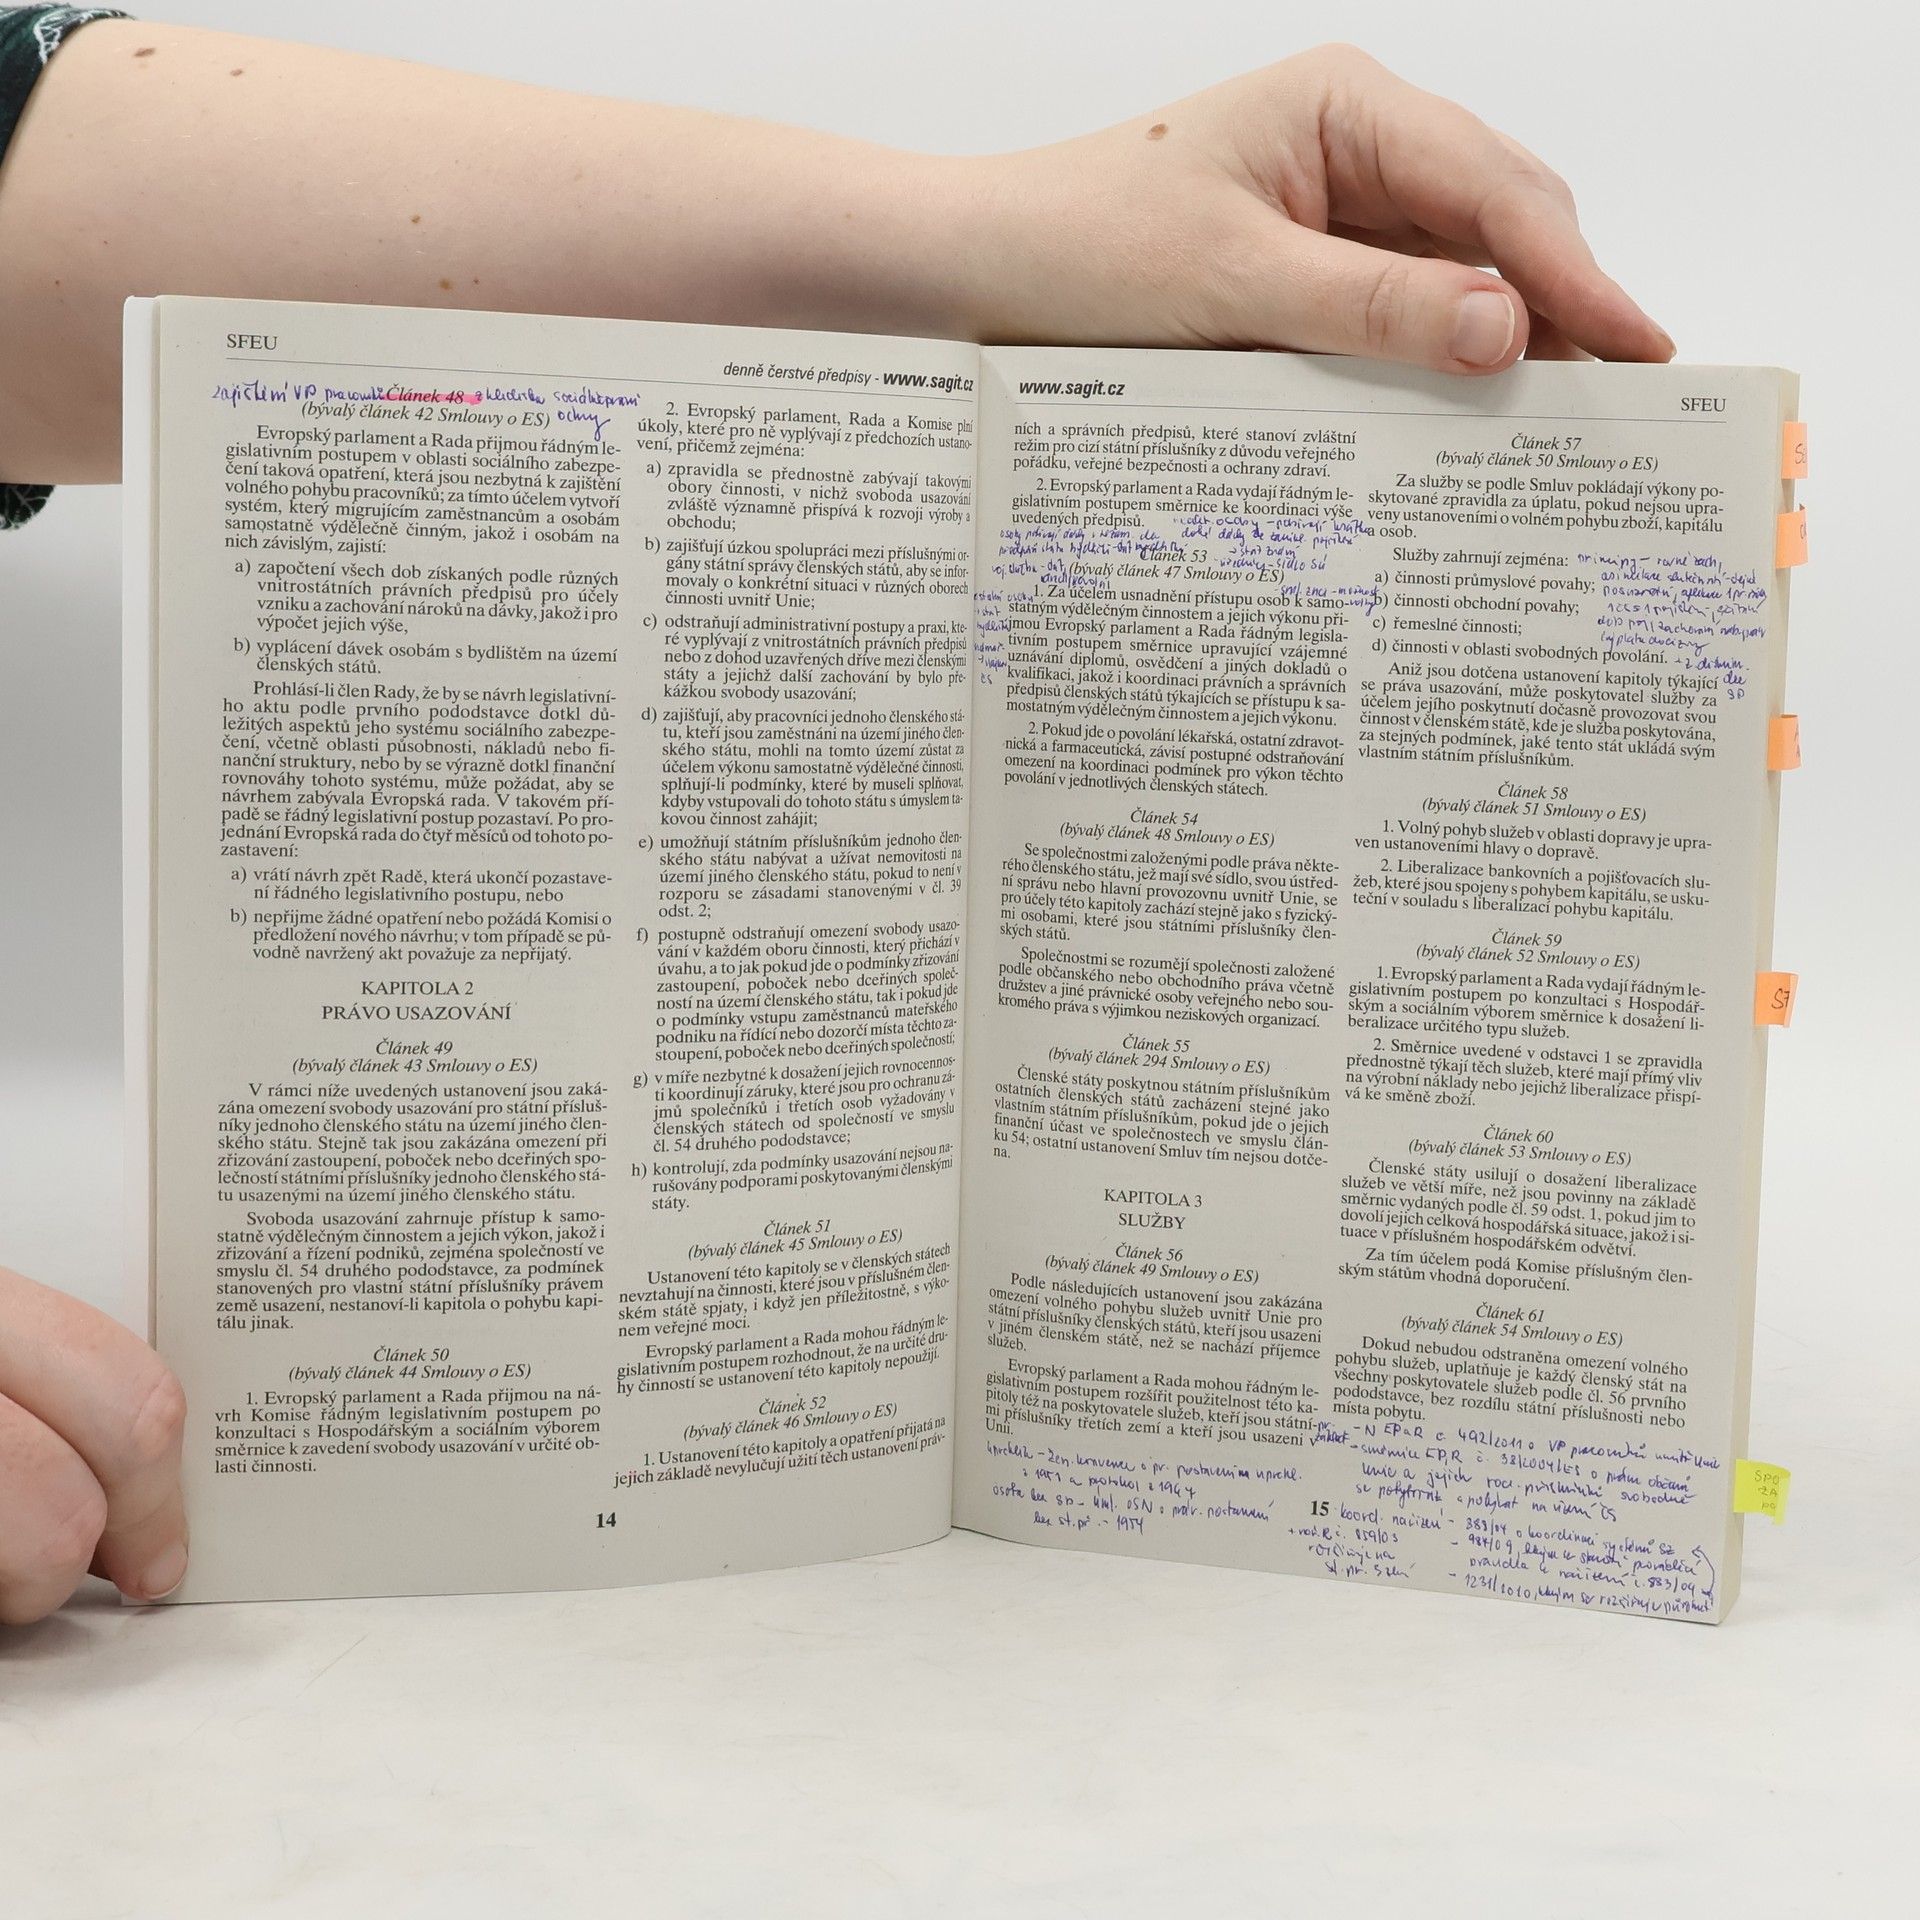 SFEU
denně čerstvé předpisy - www.sagit.cz
zajištění VP pracovníků Článek 48 z hlediska sociálněprávní
(bývalý článek 42 Smlouvy o ES) ochrany
Evropský parlament a Rada přijmou řádným le-
gislativním postupem v oblasti sociálního zabezpe-
čení taková opatření, která jsou nezbytná k zajištění
volného pohybu pracovníků; za tímto účelem vytvoří
systém, který migrujícím zaměstnancům a osobám
samostatně výdělečně činným, jakož i osobám na
nich závislým, zajistí:
a) započtení všech dob získaných podle různých
vnitrostátních právních předpisů pro účely
vzniku a zachování nároků na dávky, jakož i pro
výpočet jejich výše,
b) vyplácení dávek osobám s bydlištěm na území
členských států.
Prohlásí-li člen Rady, že by se návrh legislativní-
ho aktu podle prvního pododstavce dotkl dů-
ležitých aspektů jeho systému sociálního zabezpe-
čení, včetně oblasti působnosti, nákladů nebo fi-
nanční struktury, nebo by se výrazně dotkl finanční
rovnováhy tohoto systému, může požádat, aby se
návrhem zabývala Evropská rada. V takovém pří-
padě se řádný legislativní postup pozastaví. Po pro-
jednání Evropská rada do čtyř měsíců od tohoto po-
zastavení:
a) vrátí návrh zpět Radě, která ukončí pozastave-
ní řádného legislativního postupu, nebo
b) nepřijme žádné opatření nebo požádá Komisi o
předložení nového návrhu; v tom případě se pů-
vodně navržený akt považuje za nepřijatý.
KAPITOLA 2
PRÁVO USAZOVÁNÍ
Článek 49
(bývalý článek 43 Smlouvy o ES)
V rámci níže uvedených ustanovení jsou zaká-
zána omezení svobody usazování pro státní přísluš-
níky jednoho členského státu na území jiného člen-
ského státu. Stejně tak jsou zakázána omezení při
zřizování zastoupení, poboček nebo dceřiných spo-
lečností státními příslušníky jednoho členského stá-
tu usazenými na území jiného členského státu.
Svoboda usazování zahrnuje přístup k samo-
statně výdělečným činnostem a jejich výkon, jakož i
zřizování a řízení podniků, zejména společností ve
smyslu čl. 54 druhého pododstavce, za podmínek
stanovených pro vlastní státní příslušníky právem
země usazení, nestanoví-li kapitola o pohybu kapi-
tálu jinak.
Článek 50
(bývalý článek 44 Smlouvy o ES)
1. Evropský parlament a Rada přijmou na ná-
vrh Komise řádným legislativním postupem po
konzultaci s Hospodářským a sociálním výborem
směrnice k zavedení svobody usazování v určité ob-
lasti činnosti.
2. Evropský parlament, Rada a Komise plní
úkoly, které pro ně vyplývají z předchozích ustano-
vení, přičemž zejména:
a) zpravidla se přednostně zabývají takovými
obory činnosti, v nichž svoboda usazování
zvláště významně přispívá k rozvoji výroby a
obchodu;
b) zajišťují úzkou spolupráci mezi příslušnými or-
gány státní správy členských států, aby se infor-
movaly o konkrétní situaci v různých oborech
činnosti uvnitř Unie;
c) odstraňují administrativní postupy a praxi, kte-
ré vyplývají z vnitrostátních právních předpisů
nebo z dohod uzavřených dříve mezi členskými
státy a jejichž další zachování by bylo pře-
kážkou svobody usazování;
d) zajišťují, aby pracovníci jednoho členského stá-
tu, kteří jsou zaměstnáni na území jiného člen-
ského státu, mohli na tomto území zůstat za
účelem výkonu samostatně výdělečné činnosti,
splňují-li podmínky, které by museli splňovat,
kdyby vstupovali do tohoto státu s úmyslem ta-
kovou činnost zahájit;
e) umožňují státním příslušníkům jednoho člen-
ského státu nabývat a užívat nemovitosti na
území jiného členského státu, pokud to není v
rozporu se zásadami stanovenými v čl. 39
odst. 2;
f) postupně odstraňují omezení svobody usazo-
vání v každém oboru činnosti, který přichází v
úvahu, a to jak pokud jde o podmínky zřizování
zastoupení, poboček nebo dceřiných společ-
ností na území členského státu, tak i pokud jde
o podmínky vstupu zaměstnanců mateřského
podniku na řídící nebo dozorčí místa těchto za-
stoupení, poboček nebo dceřiných společností;
g) v míře nezbytné k dosažení jejich rovnocennos-
ti koordinují záruky, které jsou pro ochranu zá-
jmů společníků i třetích osob vyžadovány v
členských státech od společností ve smyslu
čl. 54 druhého pododstavce;
h) kontrolují, zda podmínky usazování nejsou na-
rušovány podporami poskytovanými členskými
státy.
Článek 51
(bývalý článek 45 Smlouvy o ES)
Ustanovení této kapitoly se v členských státech
nevztahují na činnosti, které jsou v příslušném člen-
ském státě spjaty, i když jen příležitostně, s výko-
nem veřejné moci.
Evropský parlament a Rada mohou řádným le-
gislativním postupem rozhodnout, že na určité dru-
hy činností se ustanovení této kapitoly nepoužijí.
Článek 52
(bývalý článek 46 Smlouvy o ES)
1. Ustanovení této kapitoly a opatření přijatá na
jejich základě nevylučují užití těch ustanovení práv-
14
www.sagit.cz
SFEU
ních a správních předpisů, které stanoví zvláštní
režim pro cizí státní příslušníky z důvodu veřejného
pořádku, veřejné bezpečnosti a ochrany zdraví.
2. Evropský parlament a Rada vydají řádným le-
gislativním postupem směrnice ke koordinaci výše
uvedených předpisů.
Článek 53
(bývalý článek 47 Smlouvy o ES)
1. Za účelem usnadnění přístupu osob k samo-
statným výdělečným činnostem a jejich výkonu při-
jmou Evropský parlament a Rada řádným legisla-
tivním postupem směrnice upravující vzájemné
uznávání diplomů, osvědčení a jiných dokladů o
kvalifikaci, jakož i koordinaci právních a správních
předpisů členských států týkajících se přístupu k sa-
mostatným výdělečným činnostem a jejich výkonu.
2. Pokud jde o povolání lékařská, ostatní zdravot-
nická a farmaceutická, závisí postupné odstraňování
omezení na koordinaci podmínek pro výkon těchto
povolání v jednotlivých členských státech.
Článek 54
(bývalý článek 48 Smlouvy o ES)
Se společnostmi založenými podle práva někte-
rého členského státu, jež mají své sídlo, svou ústřed-
ní správu nebo hlavní provozovnu uvnitř Unie, se
pro účely této kapitoly zachází stejně jako s fyzický-
mi osobami, které jsou státními příslušníky člen-
ských států.
Společnostmi se rozumějí společnosti založené
podle občanského nebo obchodního práva včetně
družstev a jiné právnické osoby veřejného nebo sou-
kromého práva s výjimkou neziskových organizací.
Článek 55
(bývalý článek 294 Smlouvy o ES)
Členské státy poskytnou státním příslušníkům
ostatních členských států zacházení stejné jako
vlastním státním příslušníkům, pokud jde o jejich
finanční účast ve společnostech ve smyslu člán-
ku 54; ostatní ustanovení Smluv tím nejsou dotče-
na.
KAPITOLA 3
SLUŽBY
Článek 56
(bývalý článek 49 Smlouvy o ES)
Podle následujících ustanovení jsou zakázána
omezení volného pohybu služeb uvnitř Unie pro
státní příslušníky členských států, kteří jsou usazeni
v jiném členském státě, než se nachází příjemce
služeb.
Evropský parlament a Rada mohou řádným le-
gislativním postupem rozšířit použitelnost této ka-
pitoly též na poskytovatele služeb, kteří jsou státní-
mi příslušníky třetích zemí a kteří jsou usazeni v
Unii.
uprchlík - Žen. konvence o pr. postavení uprchl.
z 1951 a protokol z 1967
osoba bez sp - úml. OSN o práv. postavení
bez st. př. - 1954
Článek 57
(bývalý článek 50 Smlouvy o ES)
Za služby se podle Smluv pokládají výkony po-
skytované zpravidla za úplatu, pokud nejsou upra-
veny ustanoveními o volném pohybu zboží, kapitálu
a osob.
Služby zahrnují zejména:
a) činnosti průmyslové povahy;
b) činnosti obchodní povahy;
c) řemeslné činnosti;
d) činnosti v oblasti svobodných povolání.
Aniž jsou dotčena ustanovení kapitoly týkající
se práva usazování, může poskytovatel služby za
účelem jejího poskytnutí dočasně provozovat svou
činnost v členském státě, kde je služba poskytována,
za stejných podmínek, jaké tento stát ukládá svým
vlastním státním příslušníkům.
Článek 58
(bývalý článek 51 Smlouvy o ES)
1. Volný pohyb služeb v oblasti dopravy je upra-
ven ustanoveními hlavy o dopravě.
2. Liberalizace bankovních a pojišťovacích slu-
žeb, které jsou spojeny s pohybem kapitálu, se usku-
teční v souladu s liberalizací pohybu kapitálu.
Článek 59
(bývalý článek 52 Smlouvy o ES)
1. Evropský parlament a Rada vydají řádným le-
gislativním postupem po konzultaci s Hospodář-
ským a sociálním výborem směrnice k dosažení li-
beralizace určitého typu služeb.
2. Směrnice uvedené v odstavci 1 se zpravidla
přednostně týkají těch služeb, které mají přímý vliv
na výrobní náklady nebo jejichž liberalizace přispí-
vá ke směně zboží.
Článek 60
(bývalý článek 53 Smlouvy o ES)
Členské státy usilují o dosažení liberalizace
služeb ve větší míře, než jsou povinny na základě
směrnic vydaných podle čl. 59 odst. 1, pokud jim to
dovolí jejich celková hospodářská situace, jakož i si-
tuace v příslušném hospodářském odvětví.
Za tím účelem podá Komise příslušným člen-
ským státům vhodná doporučení.
Článek 61
(bývalý článek 54 Smlouvy o ES)
Dokud nebudou odstraněna omezení volného
pohybu služeb, uplatňuje je každý členský stát na
všechny poskytovatele služeb podle čl. 56 prvního
pododstavce, bez rozdílu státní příslušnosti nebo
místa pobytu.
- N EPaR č. 492/2011 o VP pracovníků uvnitř Unie
- směrnice EP,R č. 38/2004/ES o právu občanů
Unie a jejich rod. příslušníků svobodně
se pohybovat a pobývat na území ČS
15
koord. nařízení - 883/04 o koordinaci systémů SZ
- 987/09, kterým se stanoví prováděcí
pravidla k nařízení č. 883/04
- 1231/2010, kterým se rozšiřuje působnost
+ nař. R č. 859/03
rozšiřuje na
st. př. 3. zemí
SPO
ZA